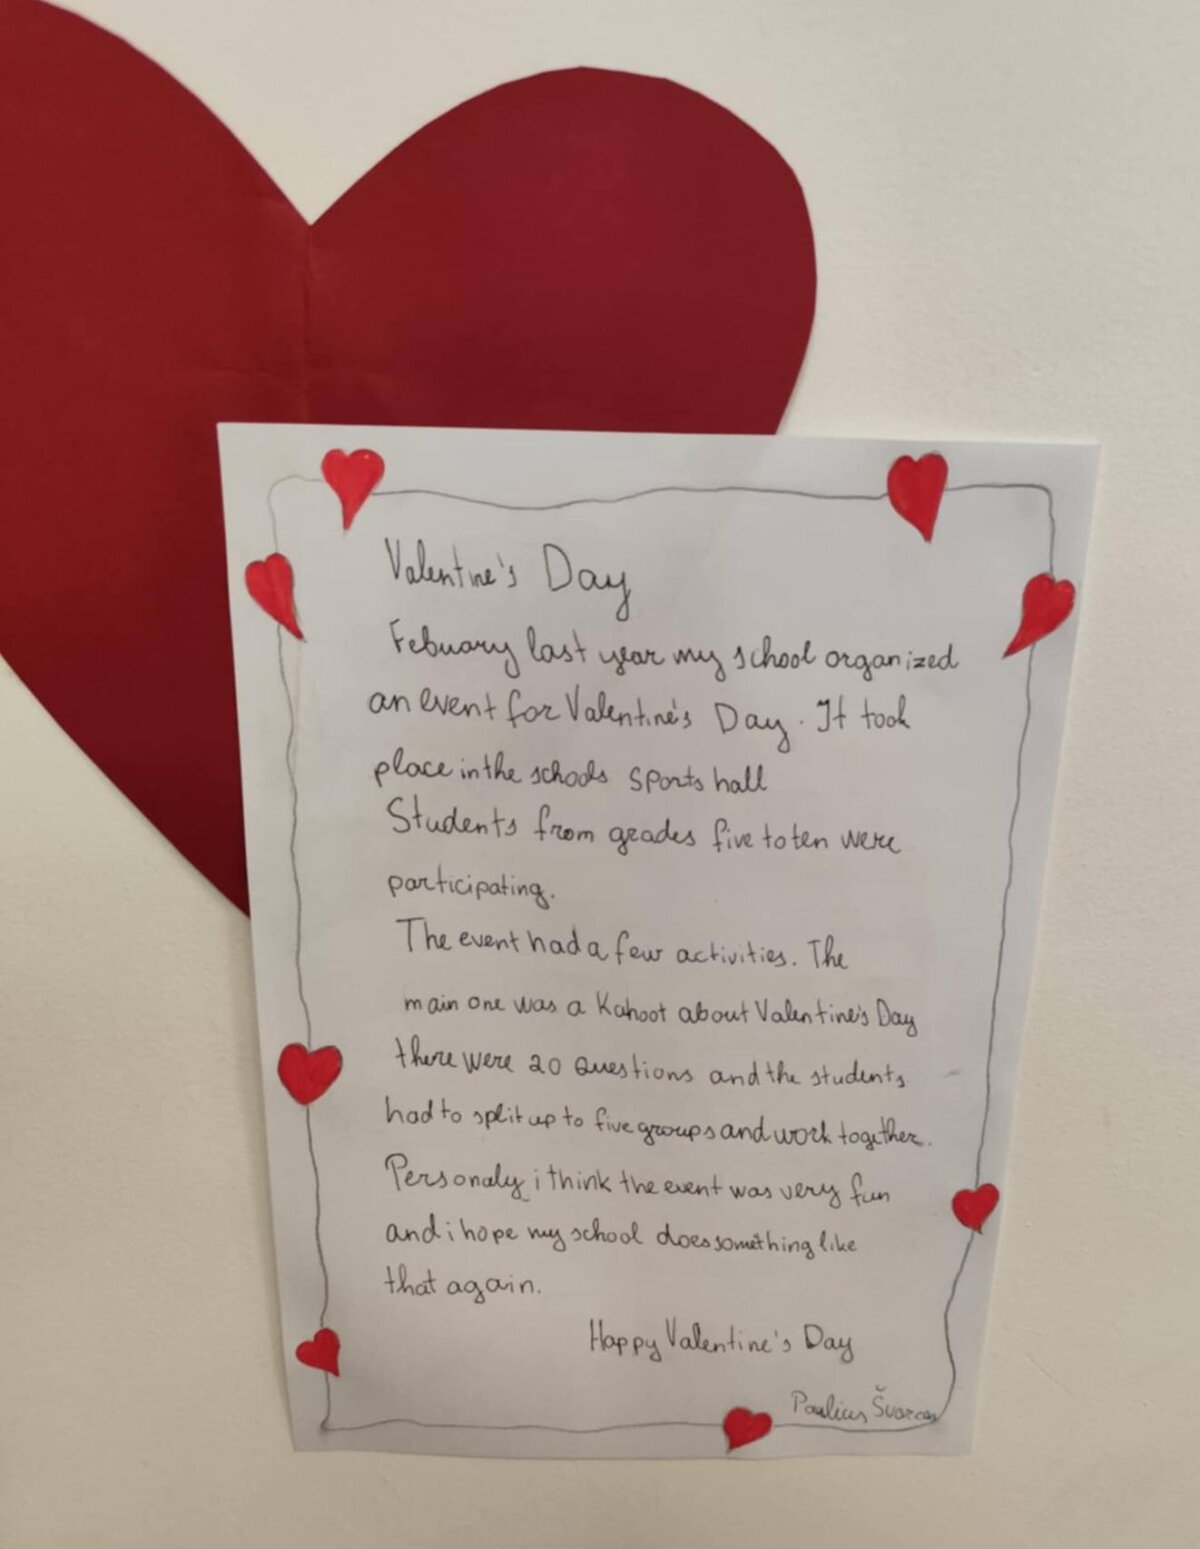 Valentine's Day
Febuary last year my school organized
an event for Valentine's Day. It took
place in the schools sports hall
Students from grades five to ten were
participating.
The event had a few activities. The
main one was a Kahoot about Valentine's Day
there were 20 Questions and the students
had to split up to five groups and work together.
Personaly i think the event was very fun
and i hope my school does something like
that again.
Happy Valentine's Day
Paulius Švarcas